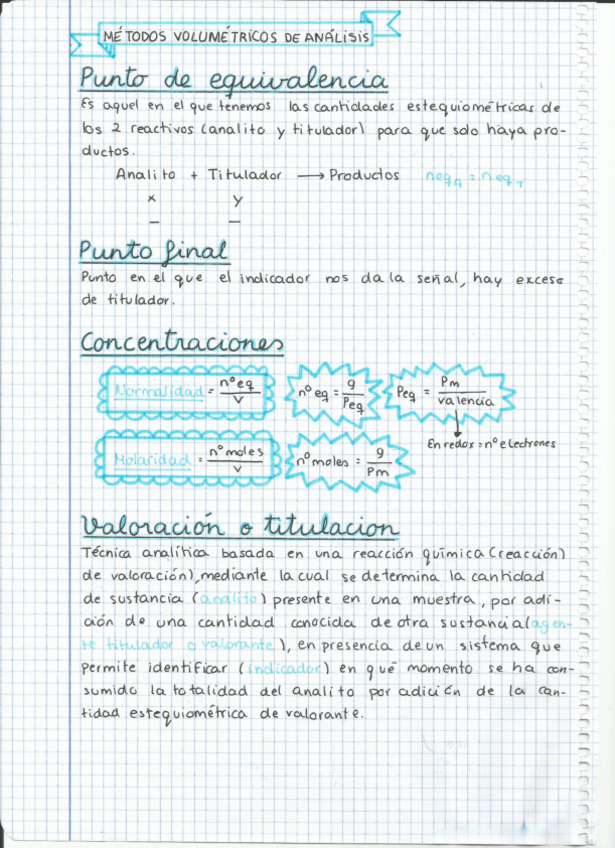 MÉTODOS VOLUMÉTRICOS DE ANÁLISIS
Punto de equivalencia
Es aquel en el que tenemos las cantidades estequiométricas de
los 2 reactivos (analito y titulador) para que solo haya pro-
ductos.
Analito + Titulador ⟶ Productos neq_A = neq_T
x y
– –
Punto final
Punto en el que el indicador nos da la señal, hay exceso
de titulador.
Concentraciones
Normalidad = nº eq / V nº eq = g / Peq Peq = Pm / valencia
En redox = nº electrones
Molaridad = nº moles / V nº moles = g / Pm
Valoración o titulacion
Técnica analítica basada en una reacción química (reacción
de valoración), mediante la cual se determina la cantidad
de sustancia (analito) presente en una muestra, por adi-
ción de una cantidad conocida de otra sustancia (agen-
te titulador o valorante), en presencia de un sistema que
permite identificar (indicador) en qué momento se ha con-
sumido la totalidad del analito por adición de la can-
tidad estequiométrica de valorante.